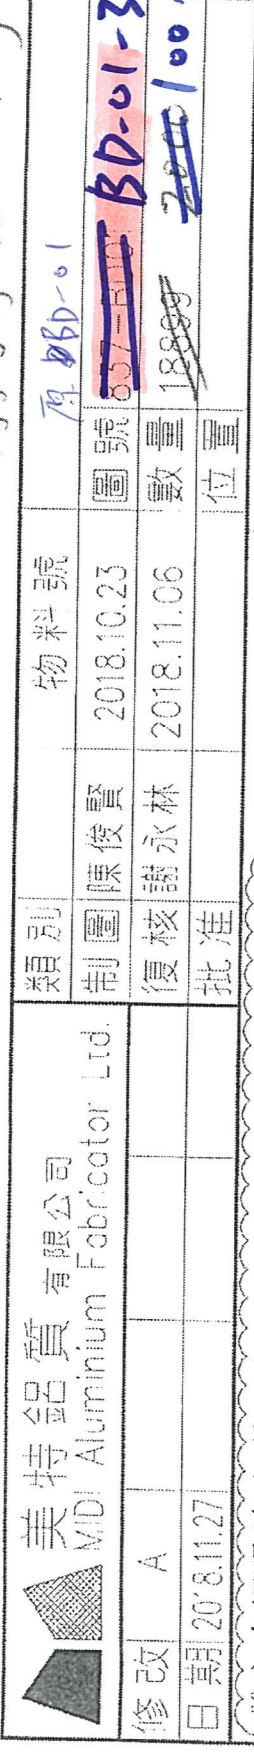 美特鋁質有限公司
MIDI Aluminium Fabricator Ltd.
修改 A
日期 2018.11.27
類別 物料號 原BD-01
制圖 陳俊賢 2018.10.23 圖號 BD-01-3
復核 謝永林 2018.11.06 數量 18899 2000 100
批准 位置